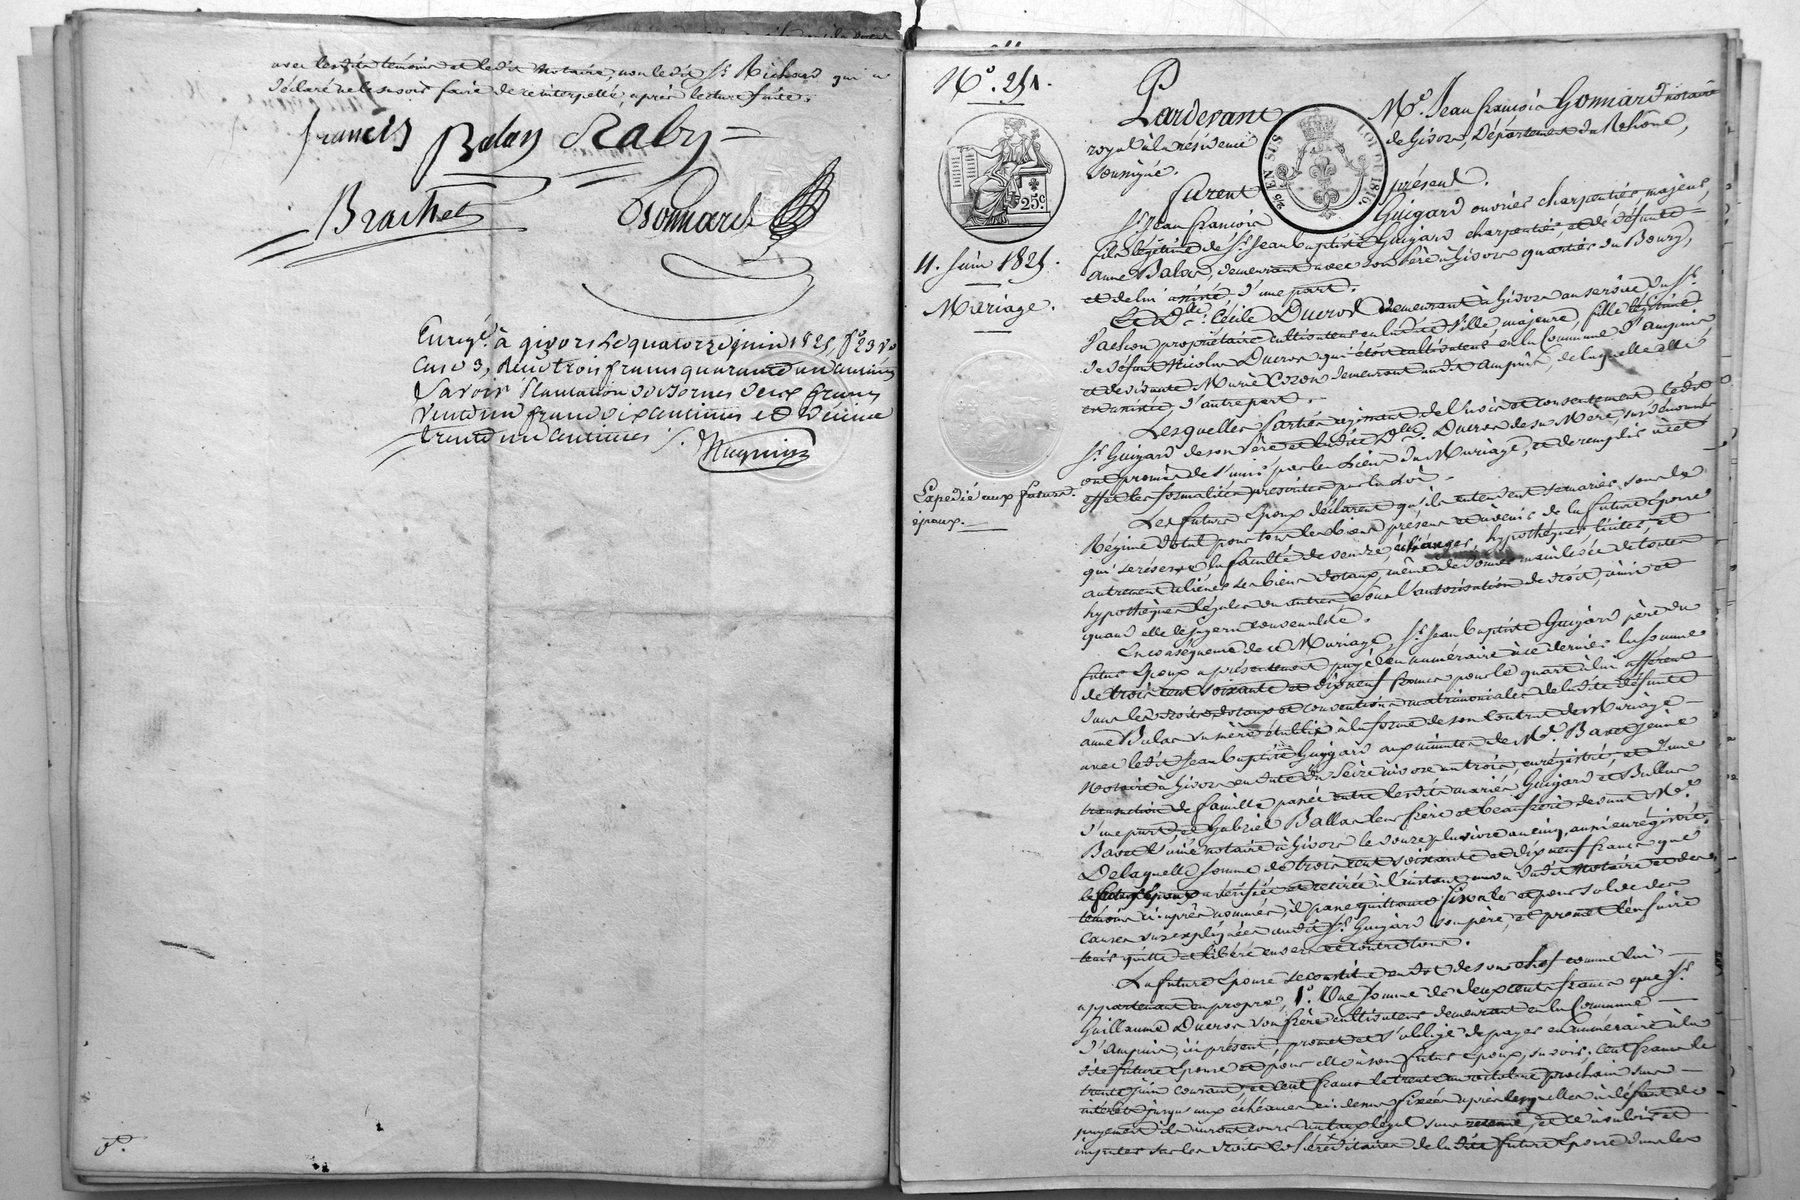 avec lesdits témoins et ledit Notaire, non ledit Sr. Richard qui a
déclaré ne le savoir faire de ce interpellé, après lecture faite.
francis Balay Raby
Brachet Gonnard
Enregé. à givors le quatorze juin 1825, fo. 23 Vo
Case 3, Reçu trois francs quarante un centimes
Savoir Plantation de bornes deux francs
vingt un franc dix centimes et Décime
trente un Centimes
Magnin
No. 251.
25c
11. Juin 1825.
Mariage.
Expédié aux futurs
époux.
Pardevant Me. Jean François Gonnard notaire
EN SUS LOI DE 1816
royal à la résidence de Givors, Département du Rhône,
soussigné.
furent présent.
Sr. Jean François Guigard ouvrier charpentier, majeur,
fils légitime de Sr. Jean Baptiste Guigard charpentier, et de défunte
Anne Balas, demeurant avec son père à Givors quartier du Bourg,
et de lui assisté, d'une part.
Et Dlle. Cécile Ducros demeurant à Givors au service du Sr.
propriétaire cultivateur en ladite Ville, majeure, fille légitime
de défunt Nicolas Ducros qui était cultivateur en la Commune d'ampuis
et de vivante Marie Cizon demeurant audit ampuis, de laquelle elle
est assistée, d'autre part.
Lesquelles parties agissant de l'avis et consentement, ledit
Sr. Guigard de son père et ladite Dlle. Ducros de sa Mère, susdénommés
ont promis de s'unir par les Liens du Mariage, et de remplir à cet
effet les formalités prescrites par la Loi.
Les futurs Epoux déclarent qu'ils entendent se marier sous le
Régime dotal pour tous les biens présens et à venir de la future Epouse
qui se réserve la faculté de vendre, échanger, hypothéquer, liciter, et
autrement aliéner ses biens dotaux, même de donner mainlevée de toutes
hypothèques légales ou autres sous l'autorisation de droit, ainsi et
quand elle le jugera convenable.
En conséquence de ce Mariage, Sr. Jean Baptiste Guigard père du
futur Epoux a présentement payé en numéraire à ce dernier la somme
de trois cent soixante et dix neuf francs pour le quart à lui afférent
dans les droits dotaux et conventions matrimoniales de ladite défunte
anne Balas sa mère établis à la forme de son Contrat de Mariage
avec ledit Jean Baptiste Guigard aux minutes de Me. Bavet jeune
Notaire à Givors en date du Seize nivose an trois, enregistré, et d'une
transaction de famille passée entre lesdits mariés Guigard et Ballas
d'une part et Gabriel Ballas leur frère et beaufrère devant Me.
Bavet l'aîné notaire à Givors le douze pluviose an cinq, aussi enregistré.
De laquelle somme de trois cent soixante et dix neuf francs que
le futur Epoux a vérifiée et retirée à l'instant au vu dudit Notaire et des
témoins ci-après nommés, il passe quittance finale et pour solde des
causes susexpliquées audit Sr. Guigard son père, et promet l'en faire
tenir quitte et libéré envers et contre tous.
La future Epouse se constitue en dot de son chef comme lui
appartenant en propre, 1o. Une Somme de deux cents francs que Sr.
Guillaume Ducros son frère cultivateur demeurant en la Commune
d'ampuis, ici présent, promet et s'oblige de payer en numéraire à la
dite future Epouse et pour elle à son futur Epoux, savoir: Cent francs le
trente juin courant, et cent francs le trente un octobre prochain sans
intérêts jusqu'aux échéances ci-dessus fixées après lesquelles à défaut de
payement ils auront cours au taux légal sans retenue, et ce à valoir et
imputer sur les droits héréditaires de ladite future Epouse dans les